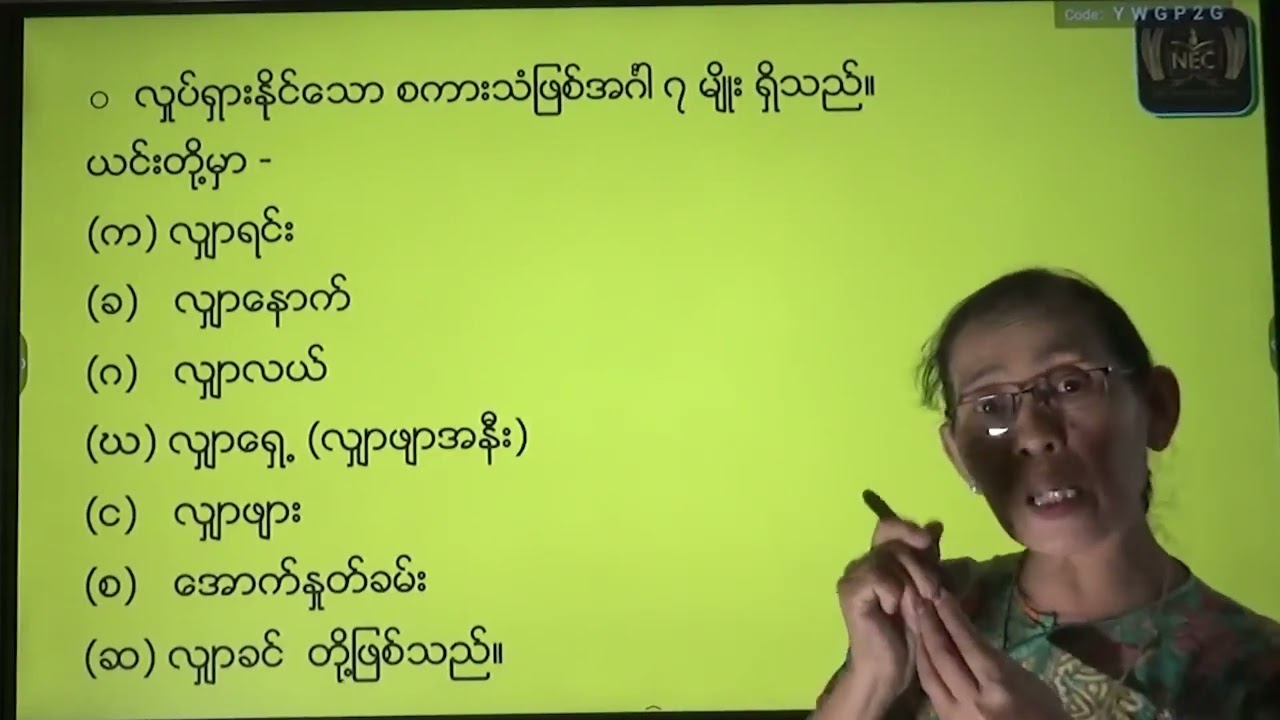 Code: Y W G P 2 G
NEC
○ လှုပ်ရှားနိုင်သော စကားသံဖြစ်အင်္ဂါ ၇ မျိုး ရှိသည်။
ယင်းတို့မှာ -
(က) လျှာရင်း
(ခ) လျှာနောက်
(ဂ) လျှာလယ်
(ဃ) လျှာရှေ့ (လျှာဖျာအနီး)
(င) လျှာဖျား
(စ) အောက်နှုတ်ခမ်း
(ဆ) လျှာခင် တို့ဖြစ်သည်။